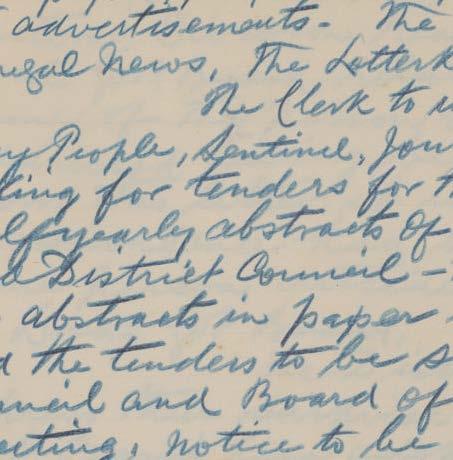 advertisements. The
egal News, The Letterk
The Clerk to
y People, Sentinel, Jou
ting for tenders for th
lfyearly abstracts of
d District Council -
abstracts in paper
d the tenders to be s
uncil and Board of
eeting, notice to be